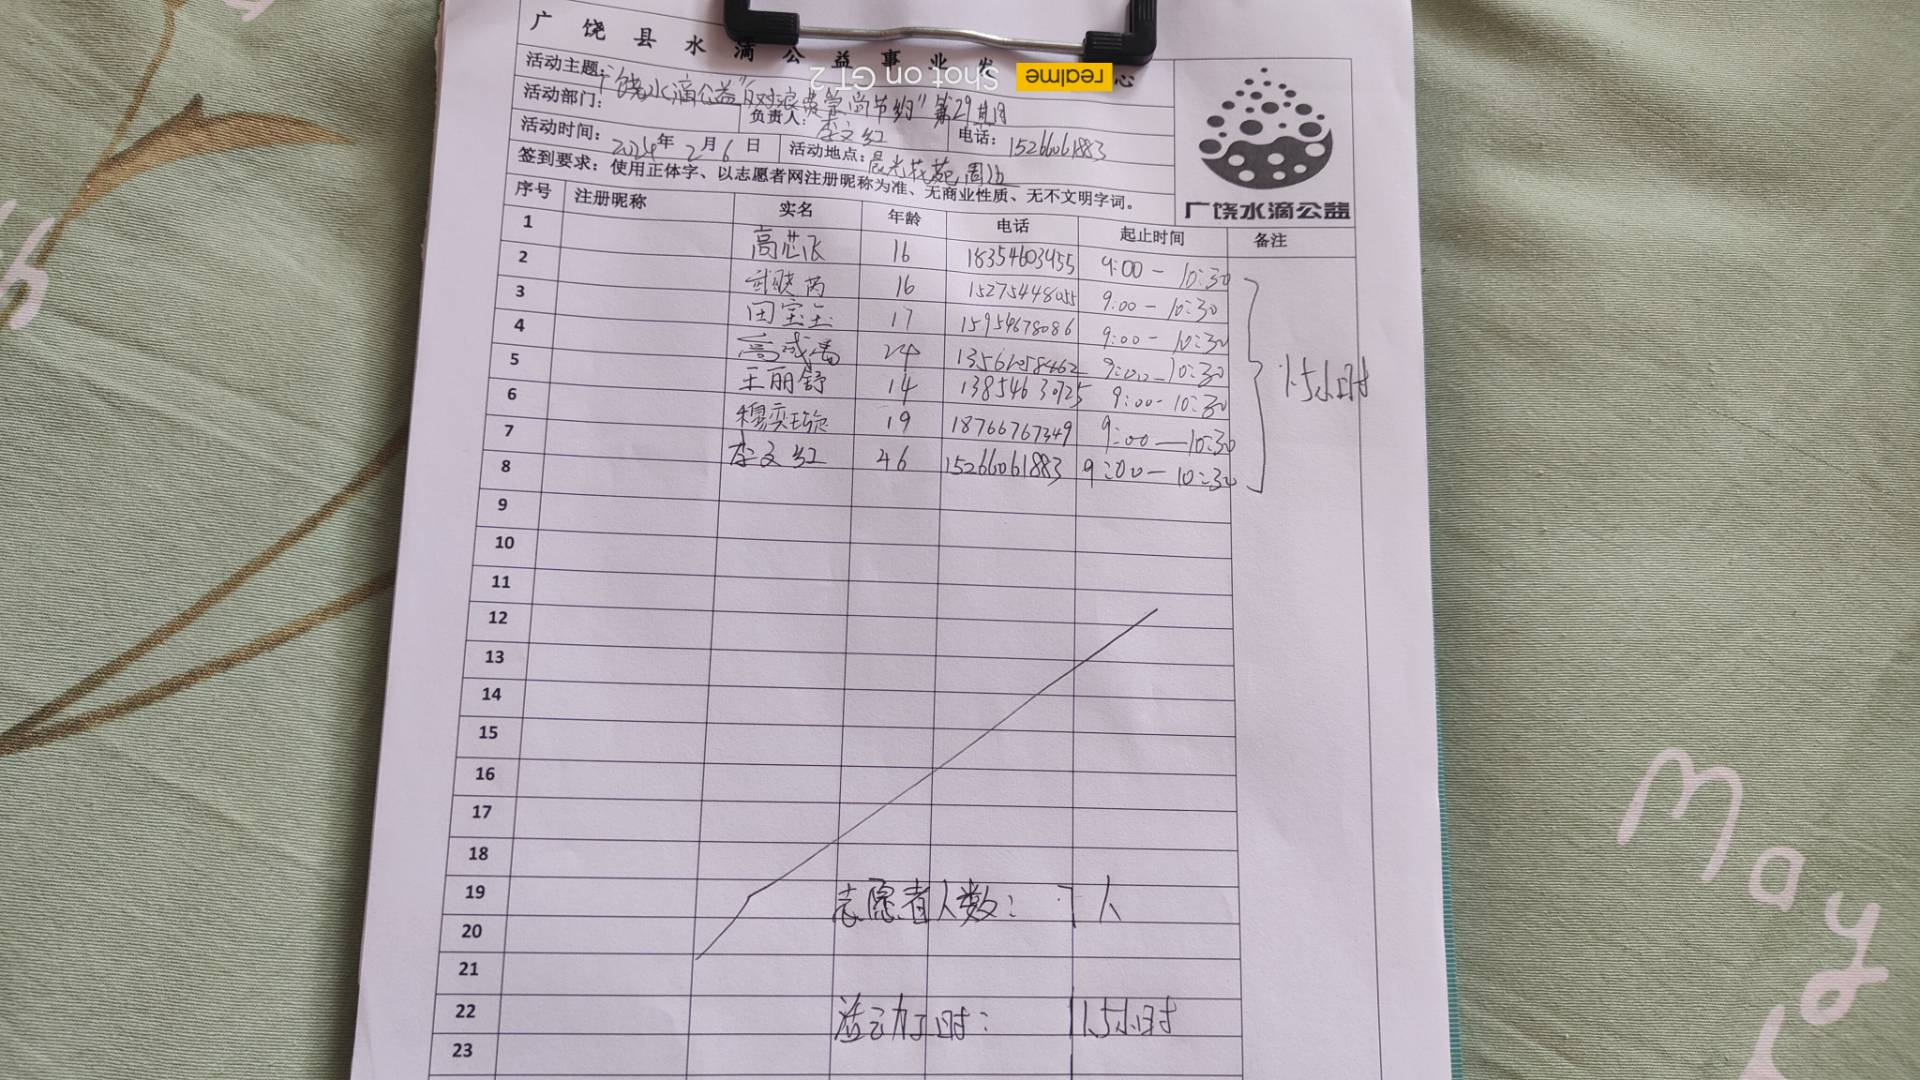 广饶县水滴公益事业发 心
realme Shot on GT 2
活动主题: 广饶水滴公益“反对浪费崇尚节约”第29期
活动部门: 负责人: 李文红 电话: 15266061883
活动时间: 2024年2月6日 活动地点: 晨光花苑周边
签到要求: 使用正体字、以志愿者网注册昵称为准、无商业性质、无不文明字词。
广饶水滴公益
序号 注册昵称 实名 年龄 电话 起止时间 备注
1 高芯飞 16 18354603455 9:00-10:30
2 武 芮 16 15275448055 9:00-10:30
3 田宝玉 17 15954678086 9:00-10:30
4 高成禹 24 13561058462 9:00-10:30
5 王丽舒 14 13854630725 9:00-10:30
6 穆奕璇 19 18766767349 9:00-10:30
7 李文红 46 15266061883 9:00-10:30
1.5小时
8
9
10
11
12
13
14
15
16
17
18
19 志愿者人数: 7人
20
21
22 活动时: 1.5小时
23
May